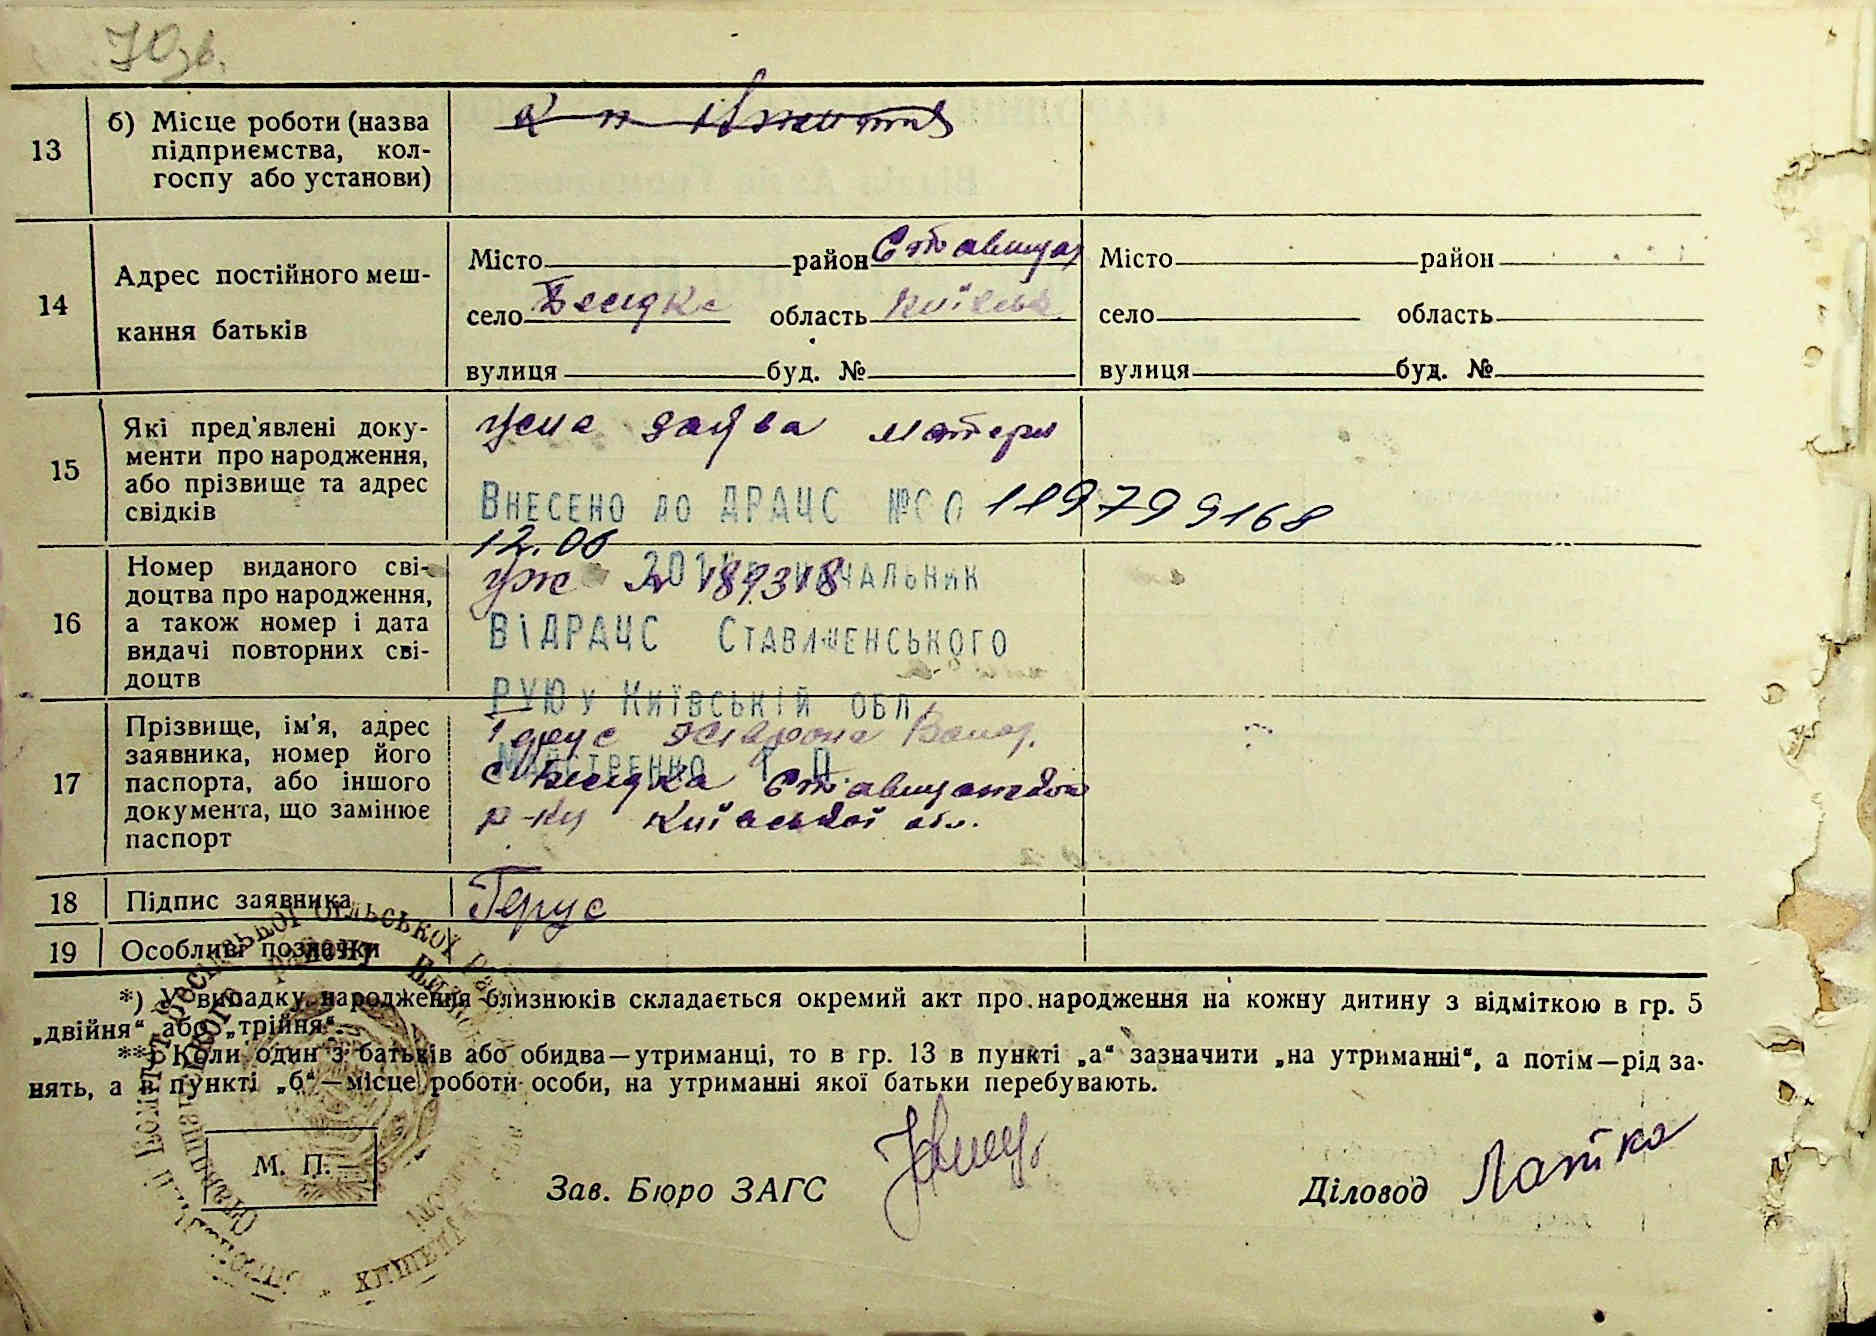 70зв.
13
б) Місце роботи (назва
підприємства, кол-
госпу або установи)
14
Адрес постійного меш-
кання батьків
Місто район Ставищан
село Бесідка область Київськ
вулиця буд. №
Місто район
село область
вулиця буд. №
15
Які пред'явлені доку-
менти про народження,
або прізвище та адрес
свідків
Усна заява матери
Внесено до ДРАЦС № 00119799168
12.06
16
Номер виданого сві-
доцтва про народження,
а також номер і дата
видачі повторних сві-
доцтв
начальник
№ 189318
ВіДРАЦС Ставищенського
РУЮ у Київській обл.
17
Прізвище, ім'я, адрес
заявника, номер його
паспорта, або іншого
документа, що замінює
паспорт
Герус
Майстренко Т. П.
с Бесідка Ставищанського
р-ну Київської обл.
18
Підпис заявника
Герус
19
Особливі позначки
*) У випадку народження близнюків складається окремий акт про народження на кожну дитину з відміткою в гр. 5
„двійня“ або „трійня“.
**) Коли один з батьків або обидва—утриманці, то в гр. 13 в пункті „а“ зазначити „на утриманні“, а потім—рід за-
нять, а в пункті „б“—місце роботи особи, на утриманні якої батьки перебувають.
М. П.
Зав. Бюро ЗАГС
Діловод Латка